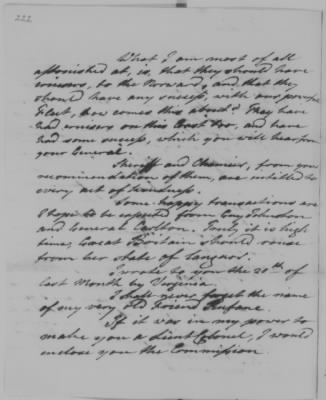 222
What I am most of all
astonished at, is, that they should have
cruisers, to the Norward, and that they
should have any success, with our proper
Fleet, how comes this about? They have
had cruisers on this Coast too, and have
had some success, which you will hear from
your General.
Sheriff and Chamier, from your
recommendation of them, are entitled to
every act of kindness.
Some happy transactions are
I hope to be expected from Guy Johnston
and General Carlton. Truly it is high
time, Great Britain should rouse
from her State of Languor.
I wrote to you the 20th of
last Month by Virginia.
I shall never forget the name
of my very old Friend
If it was in my power to
make you a Lieut Colonel, I would
enclose you the Commission.